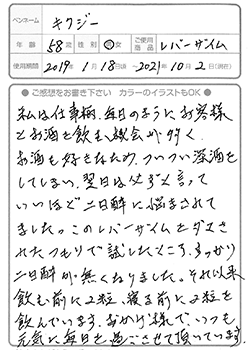 ペンネーム キクジー
年齢 58歳 性別 男・女 ご使用商品 レバーザイム
使用期間 2019年1月18日頃~2021年10月2日(現在)
●ご感想をお書き下さい カラーのイラストもOK●
私は仕事柄、毎日のようにお客様
とお酒を飲む機会が多く、
お酒も好きなため、ついつい深酒を
してしまい、翌日は必ずと言って
いいほど二日酔に悩まされて
ました。このレバーザイムをダマさ
れたつもりで試したところ、すっかり
二日酔が無くなりました。それ以来
飲む前に2粒、寝る前に2粒を
飲んでいます。おかげ様で、いつも
元気に毎日を過ごさせて頂いています